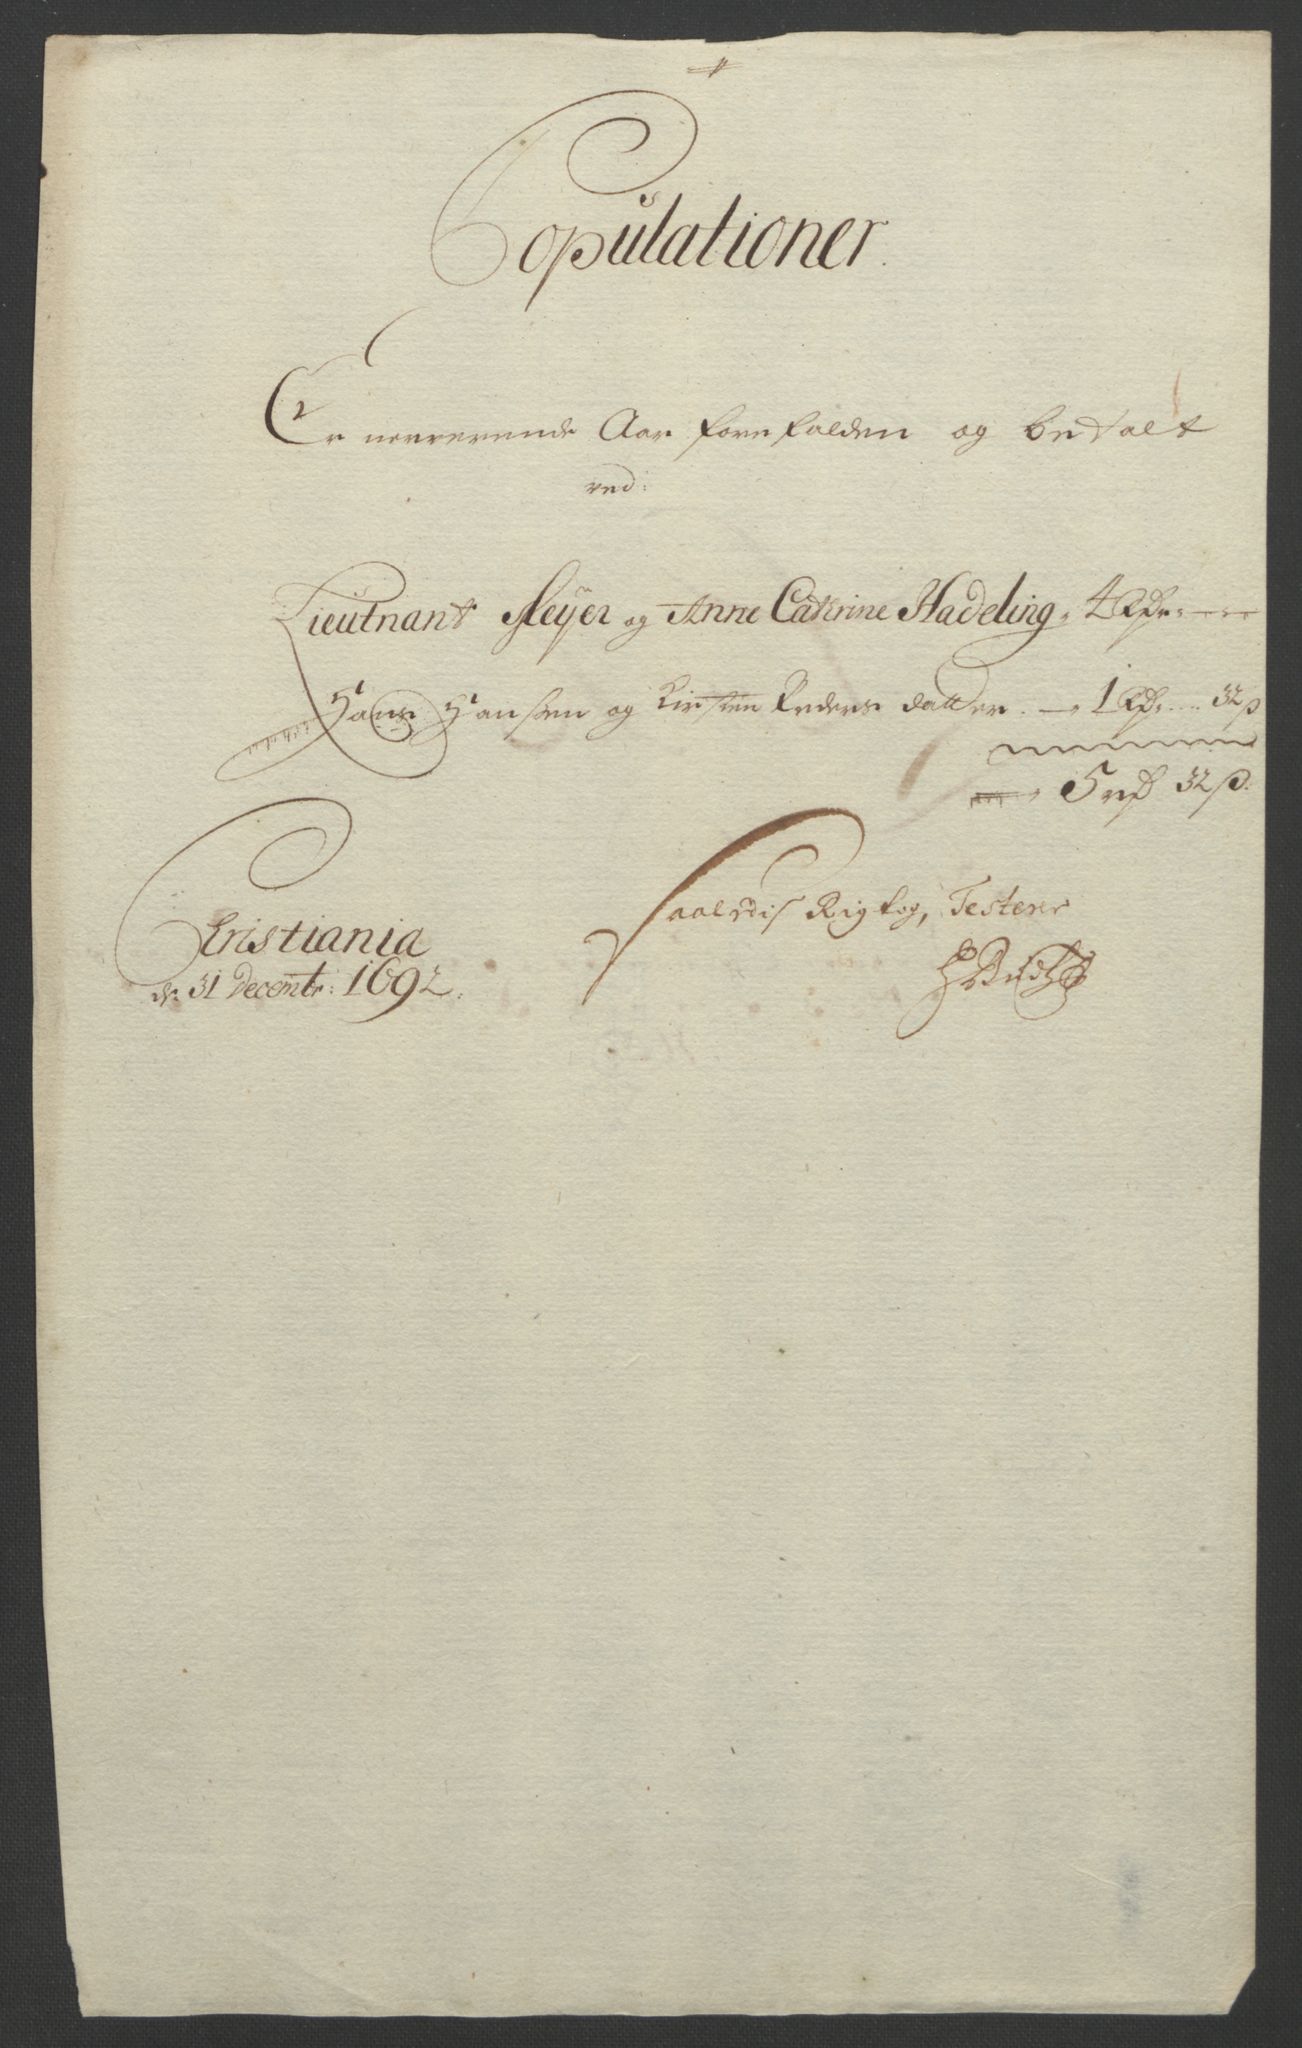 Copulationer.
Er nerverende Aar forefalden og betalt
ved:
Lieutnant Meyer og Anne Catrine Hadeling, 4 Rdr.
Hans Hansen og Kirsten Peders datter. 1 Rdr. 32 ß
5 rd 32 ß.
Cristiania
d. 31 Decembr: 1692.
Saaledis Rigtig, Testerer